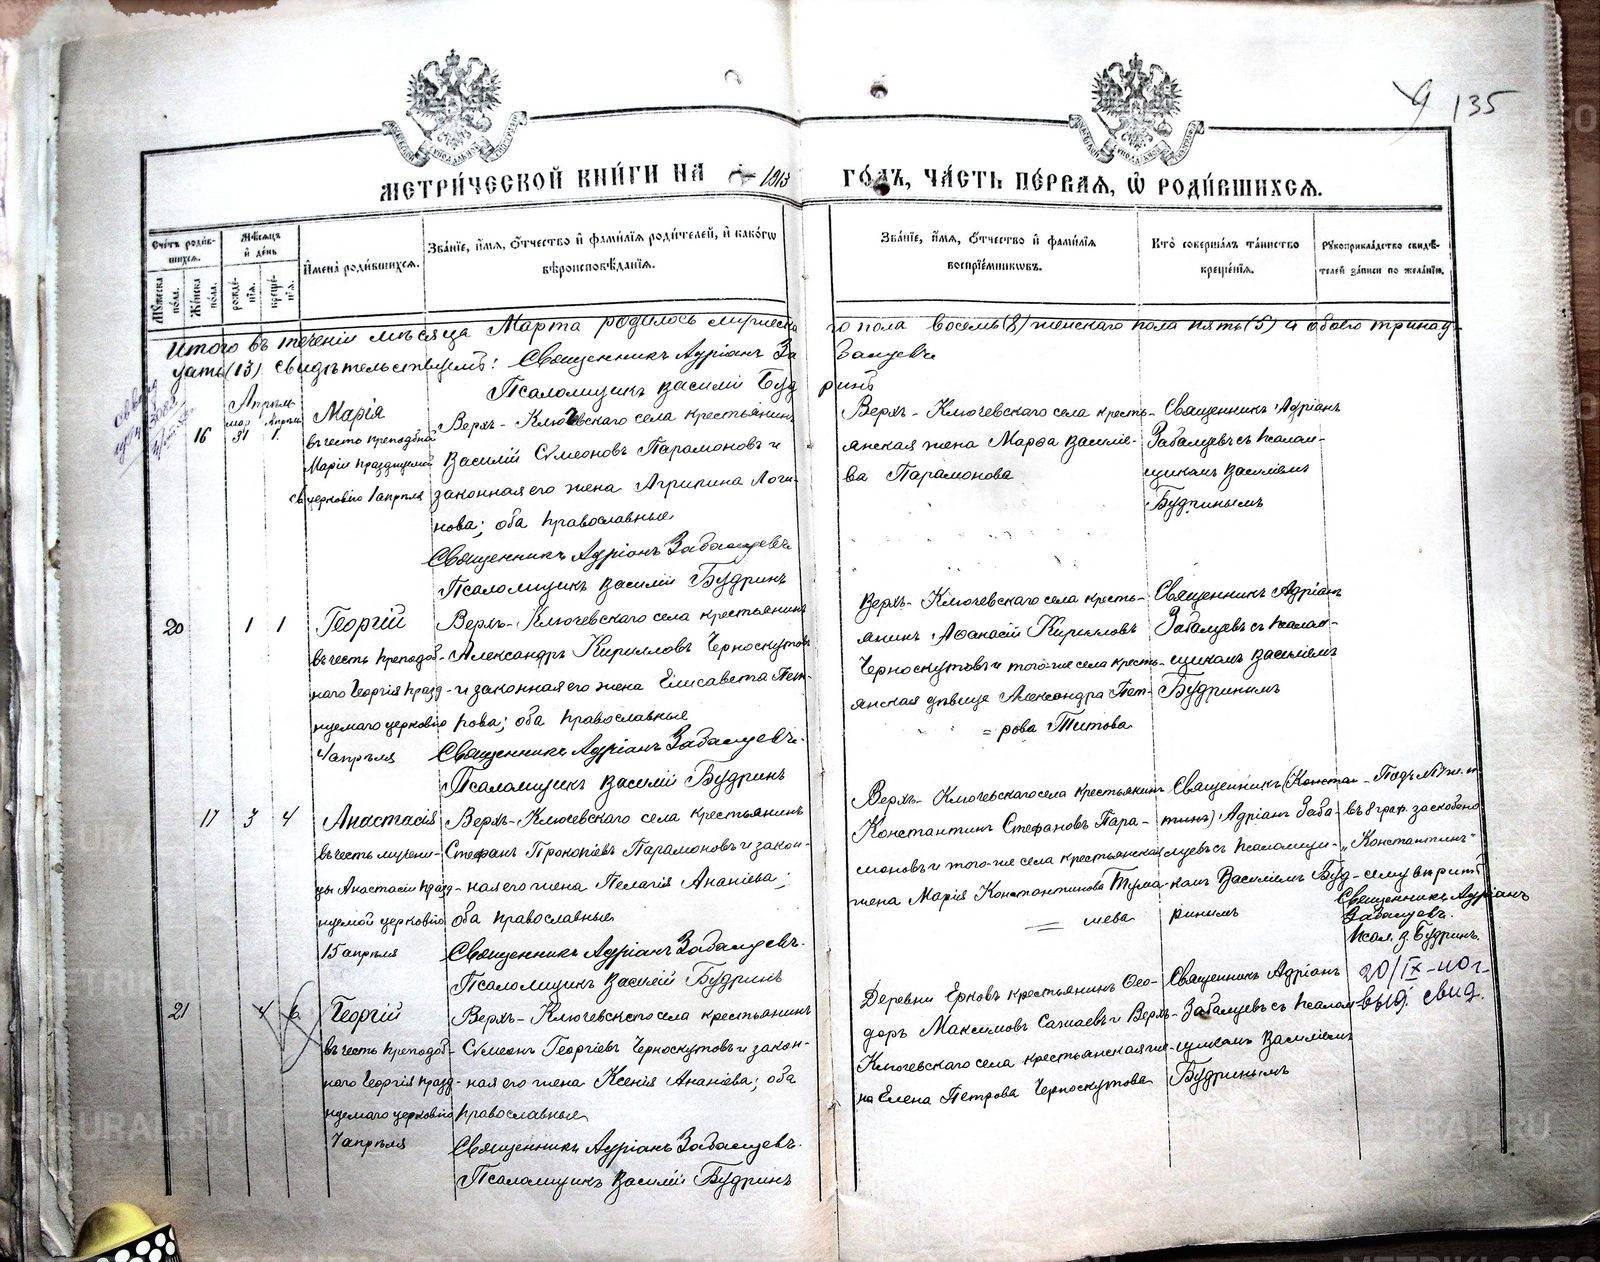 135
МЕТРИ́ЧЕСКОЙ КНИ́ГИ НА 1913 ГО́ДЪ, ЧА́СТЬ ПЕ́РВАЯ, Ѿ РОДИ́ВШИХСЯ.
Сче́тъ роди́в-
шихся.
Му́жеска
пола.
Же́нска
пола.
Мѣ́сяцъ
и҆ де́нь
рожде́-
нїя.
креще́-
нїя.
И҆мена̀ роди́вшихся.
Зва́нїе, и҆́мя, ѻ҆́тчество и҆ фами́лїя роди́телей, и҆ како́гѡ
вѣроисповѣ́данїя.
Зва́нїе, и҆́мя, ѻ҆́тчество и҆ фами́лїя
воспрїе́мниковъ.
Кто̀ соверша́лъ та́инство
креще́нїя.
Рꙋкоприкла́дство свидѣ́-
телей за́писи по жела́нїю.
Итого въ теченіи мѣсяца Марта родилось мужеска го пола восемь (8) женскаго пола пять (5) и обоего тринад-
цать (13) свидѣтельствуемъ: Священникъ Адріанъ Забалуевъ
Псаломщикъ Василій Будринъ
Апрѣль
16
мар 31
Апрѣл 1
Марія
въ честь преподобна
Маріи празднуемой
св церковію 1 апрѣля
Верхъ-Ключевскаго села крестьянинъ
Василій Сѵмеоновъ Парамоновъ и
законная его жена Агрипина Логи-
нова; оба православные
Священникъ Адріанъ Забалуевъ
Псаломщикъ Василій Будринъ
Верхъ-Ключевскаго села кресть-
янская жена Марѳа Василіе-
ва Парамонова
Священникъ Адріанъ
Забалуевъ съ псалом-
щикомъ Василіемъ
Будринымъ
20
1 1
Георгій
въ честь преподоб-
наго Георгія празд-
нуемаго церковію
4 апрѣля
Верхъ-Ключевскаго села крестьянинъ
Александръ Кирилловъ Черноскутовъ
и законная его жена Елисавета Пет-
рова; оба православные
Священникъ Адріанъ Забалуевъ.
Псаломщикъ Василій Будринъ
Верхъ-Ключевскаго села кресть-
янинъ Аѳанасій Кирилловъ
Черноскутовъ и того-же села кресть-
янская дѣвица Александра Пет-
= рова Титова
Священникъ Адріанъ
Забалуевъ съ псалом-
щикомъ Василіемъ
Будринымъ
17
3 4
Анастасія
въ честь мучени-
цы Анастасіи празд-
нуемой церковію
15 апрѣля
Верхъ-Ключевскаго села крестьянинъ
Стефанъ Прокопіевъ Парамоновъ и закон-
ная его жена Пелагія Ананіева;
оба православные
Священникъ Адріанъ Забалуевъ.
Псаломщикъ Василій Будринъ
Верхъ-Ключевскаго села крестьянинъ
Константинъ Стефановъ Пара-
моновъ и того-же села крестьянская
жена Марія Константинова Тума
= шева
Священникъ (Констан-
тинъ) Адріанъ Заба-
луевъ съ псаломщи-
комъ Василіемъ Буд-
ринымъ
Подъ №17 ж. п.
въ 8 граф. заскоблено
„Константинъ“
сему вѣрить
Священникъ Адріанъ
Забалуевъ.
Псал. В. Будринъ.
21
4 6
Георгій
въ честь преподоб-
наго Георгія празд-
нуемаго церковію
4 апрѣля
Верхъ-Ключевскаго села крестьянинъ
Сѵмеонъ Георгіевъ Черноскутовъ и закон-
ная его жена Ксенія Ананіева; оба
православные
Священникъ Адріанъ Забалуевъ.
Псаломщикъ Василій Будринъ
Деревни Ерковъ крестьянинъ Ѳео-
доръ Максимовъ и Верхъ-
Ключевскаго села крестьянская же-
на Елена Петрова Черноскутова
Священникъ Адріанъ
Забалуевъ съ псалом-
щикомъ Василіемъ
Будринымъ
20/IX-
выд. свид.